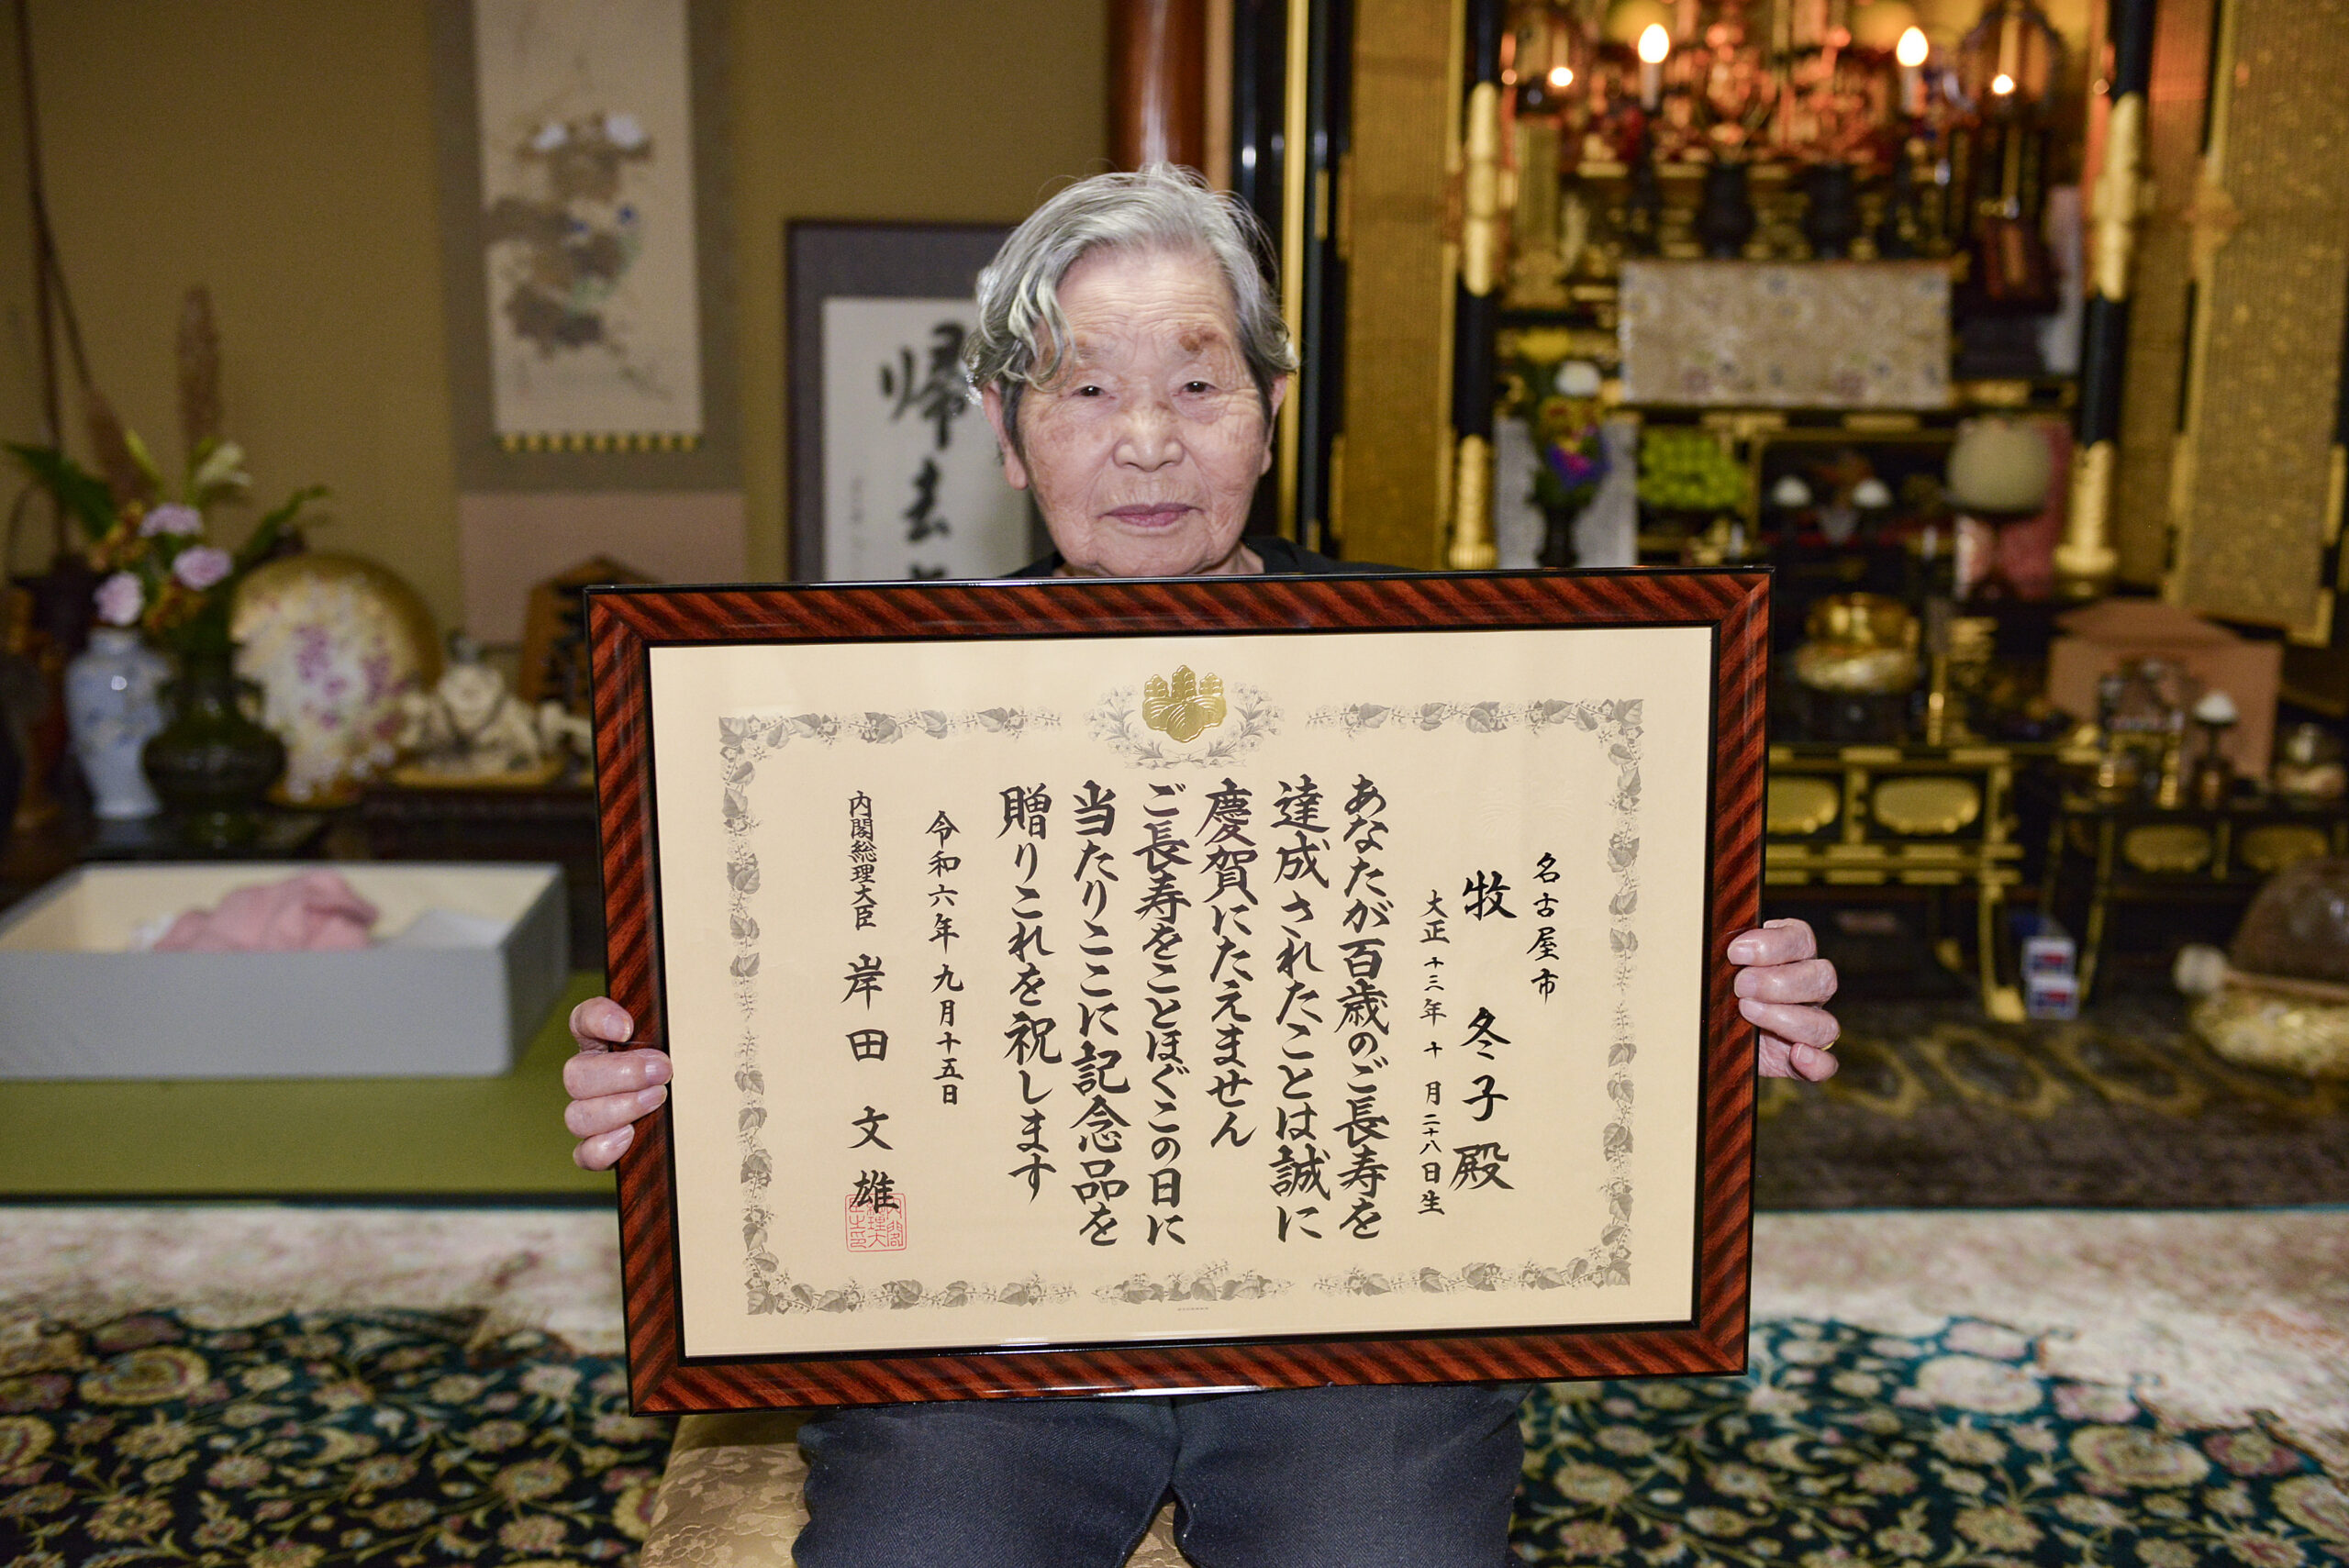 名古屋市
牧 冬子殿
大正十三年十月二十八日生
あなたが百歳のご長寿を
達成されたことは誠に
慶賀にたえません
ご長寿をことほぐこの日に
当たりここに記念品を
贈りこれを祝します
令和六年九月十五日
内閣総理大臣 岸田文雄
帰去